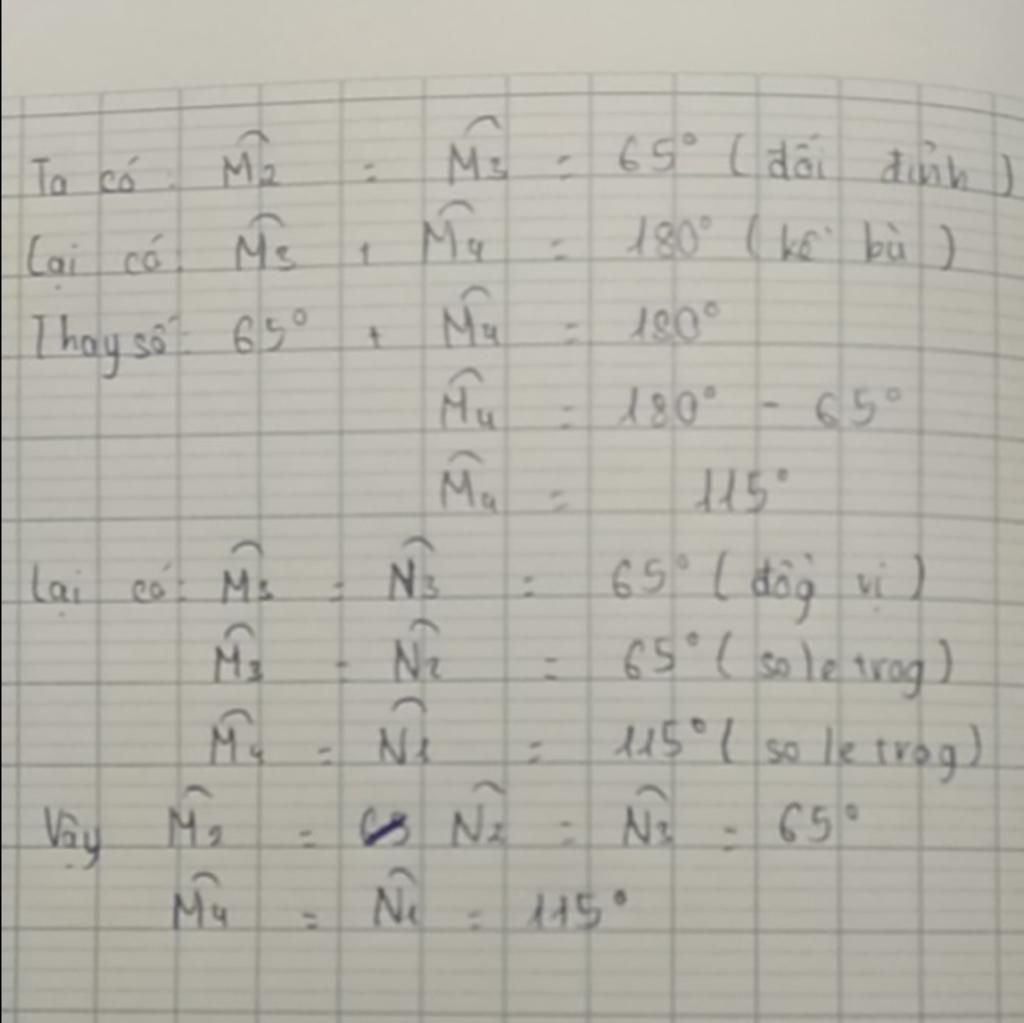 Ta có: M̂₂ = M̂₃ = 65° (đối đỉnh)
Lại có: M̂₃ + M̂₄ = 180° (kề bù)
Thay số: 65° + M̂₄ = 180°
M̂₄ = 180° - 65°
M̂₄ = 115°
Lại có: M̂₃ = N̂₃ = 65° (đồg vị)
M̂₃ = N̂₂ = 65° (so le trog)
M̂₄ = N̂₁ = 115° (so le trog)
Vậy M̂₃ = N̂₂ = N̂₃ = 65°
M̂₄ = N̂₁ = 115°